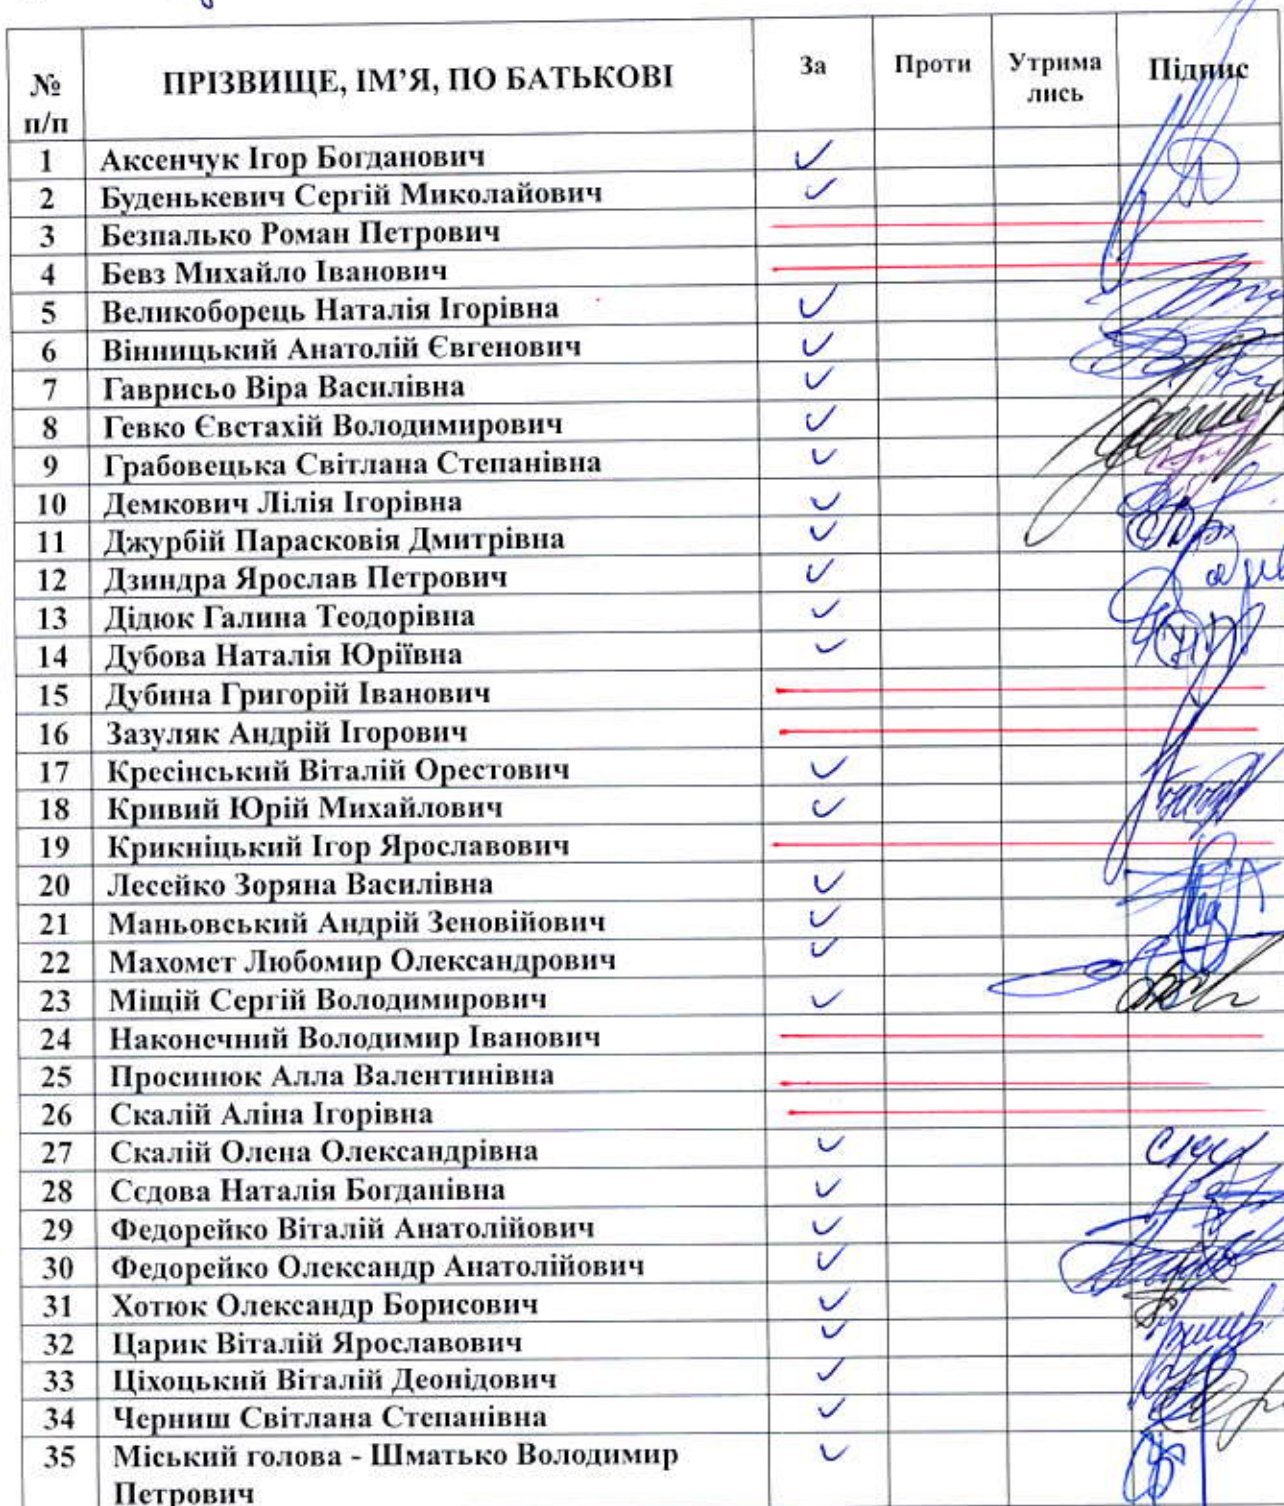 № п/п ПРІЗВИЩЕ, ІМ’Я, ПО БАТЬКОВІ За Проти Утрима лись Підпис
1 Аксенчук Ігор Богданович ✓
2 Буденькевич Сергій Миколайович ✓
3 Безпалько Роман Петрович
4 Бевз Михайло Іванович
5 Великоборець Наталія Ігорівна ✓
6 Вінницький Анатолій Євгенович ✓
7 Гаврисьо Віра Василівна ✓
8 Гевко Євстахій Володимирович ✓
9 Грабовецька Світлана Степанівна ✓
10 Демкович Лілія Ігорівна ✓
11 Джурбій Парасковія Дмитрівна ✓
12 Дзиндра Ярослав Петрович ✓
13 Дідюк Галина Теодорівна ✓
14 Дубова Наталія Юріївна ✓
15 Дубина Григорій Іванович
16 Зазуляк Андрій Ігорович
17 Кресінський Віталій Орестович ✓
18 Кривий Юрій Михайлович ✓
19 Крикніцький Ігор Ярославович
20 Лесейко Зоряна Василівна ✓
21 Маньовський Андрій Зеновійович ✓
22 Махомет Любомир Олександрович ✓
23 Міщій Сергій Володимирович ✓
24 Наконечний Володимир Іванович
25 Просинюк Алла Валентинівна
26 Скалій Аліна Ігорівна
27 Скалій Олена Олександрівна ✓
28 Сєдова Наталія Богданівна ✓
29 Федорейко Віталій Анатолійович ✓
30 Федорейко Олександр Анатолійович ✓
31 Хотюк Олександр Борисович ✓
32 Царик Віталій Ярославович ✓
33 Ціхоцький Віталій Деонідович ✓
34 Черниш Світлана Степанівна ✓
35 Міський голова - Шматько Володимир ✓
Петрович